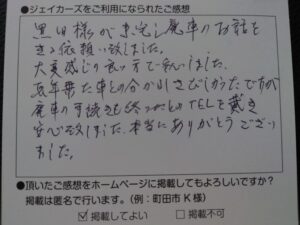 ●ジェイカーズをご利用になられたご感想
黒田様が来宅し廃車のお話を
きき依頼い致しました。
大変感じの良い方で
長年乗た車との分かれはさびしかったですが
廃車の手続きも終ったとのTELを戴き
安心致しました。本当にありがとうござい
ました。
●頂いたご感想をホームページに掲載してもよろしいですか?
掲載は匿名で行います。(例:町田市 K様)
☑掲載してよい □掲載不可